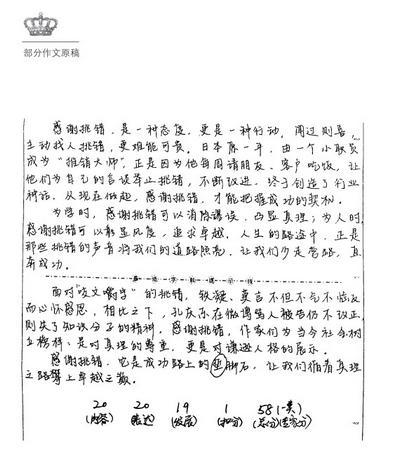 部分作文原稿
感谢挑错,是一种态度,更是一种行动,闻过则喜,
主动找人挑错,更难能可贵。日本原一平,由一个小职员
成为“推销大师”,正是因为他每周请朋友、客户吃饭,让
他们为自己的言谈举止挑错,不断改进,终于创造了行业
神话。从现在做起,感谢挑错,才能把握成功的契机。
为学时,感谢挑错可以消除谬误,凸显真理;为人时,
感谢挑错可以彰显风度,追求卓越。人生的路途中,正是
那些挑错的声音将我们的道路照亮,让我们少走弯路,直
奔成功。
面对“咬文嚼字”的挑错,铁凝、莫言不但不气不恼反
而心怀感恩,相比之下,孔庆东在微博骂人被告仍不改正,
则失了知识分子的精神。感谢挑错,作家们为当今社会树
立榜样:是对真理的尊重,更是对谦逊人格的展示。
感谢挑错,它是成功路上的垫脚石,让我们循着真理
之路攀上卓越之巅。
20 20 19 1 58(一类)
(内容) (表达) (发展) (扣分) (总分)